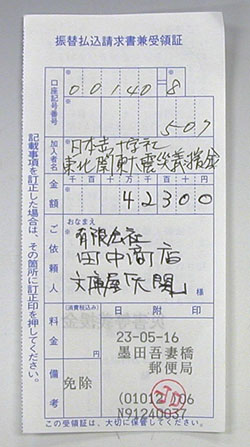 振替払込請求書兼受領証
口座記号番号
00140=8
507
加入者名
日本赤十字社
東北関東大震災義援金
金額
千百十万千百十円
42300
ご依頼人
おなまえ
有限会社
田中商店
文庫屋「大関」
様
料金
(消費税込み)
円
日附印
23-05-16
墨田吾妻橋
郵便局
備考
免除
N91240037
この受領証は、大切に保管してください。
記載事項を訂正した場合は、その箇所に訂正印を押してください。